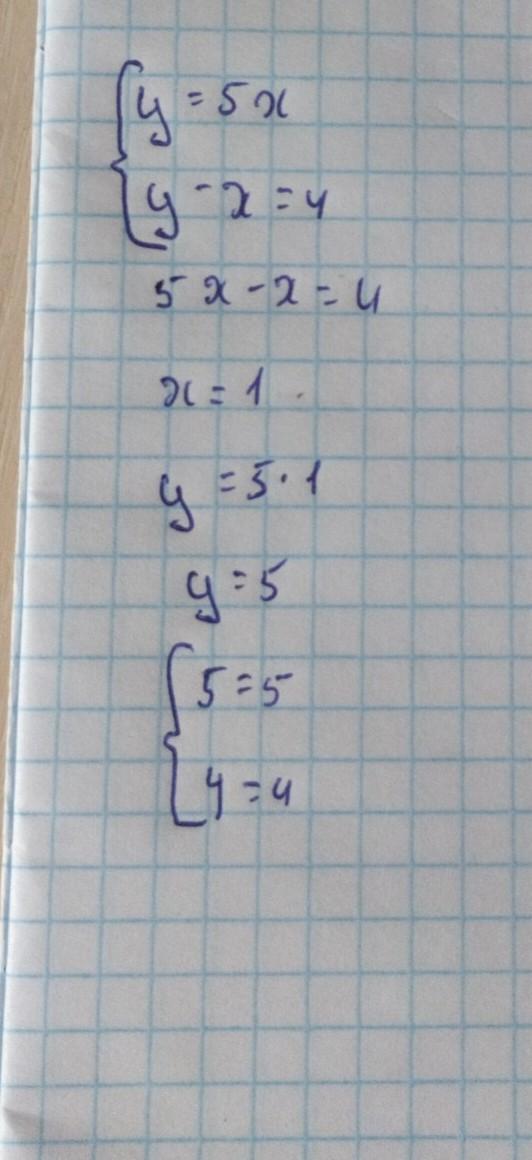 y = 5x
y - x = 4
5x - x = 4
x = 1
y = 5 · 1
y = 5
5 = 5
4 = 4